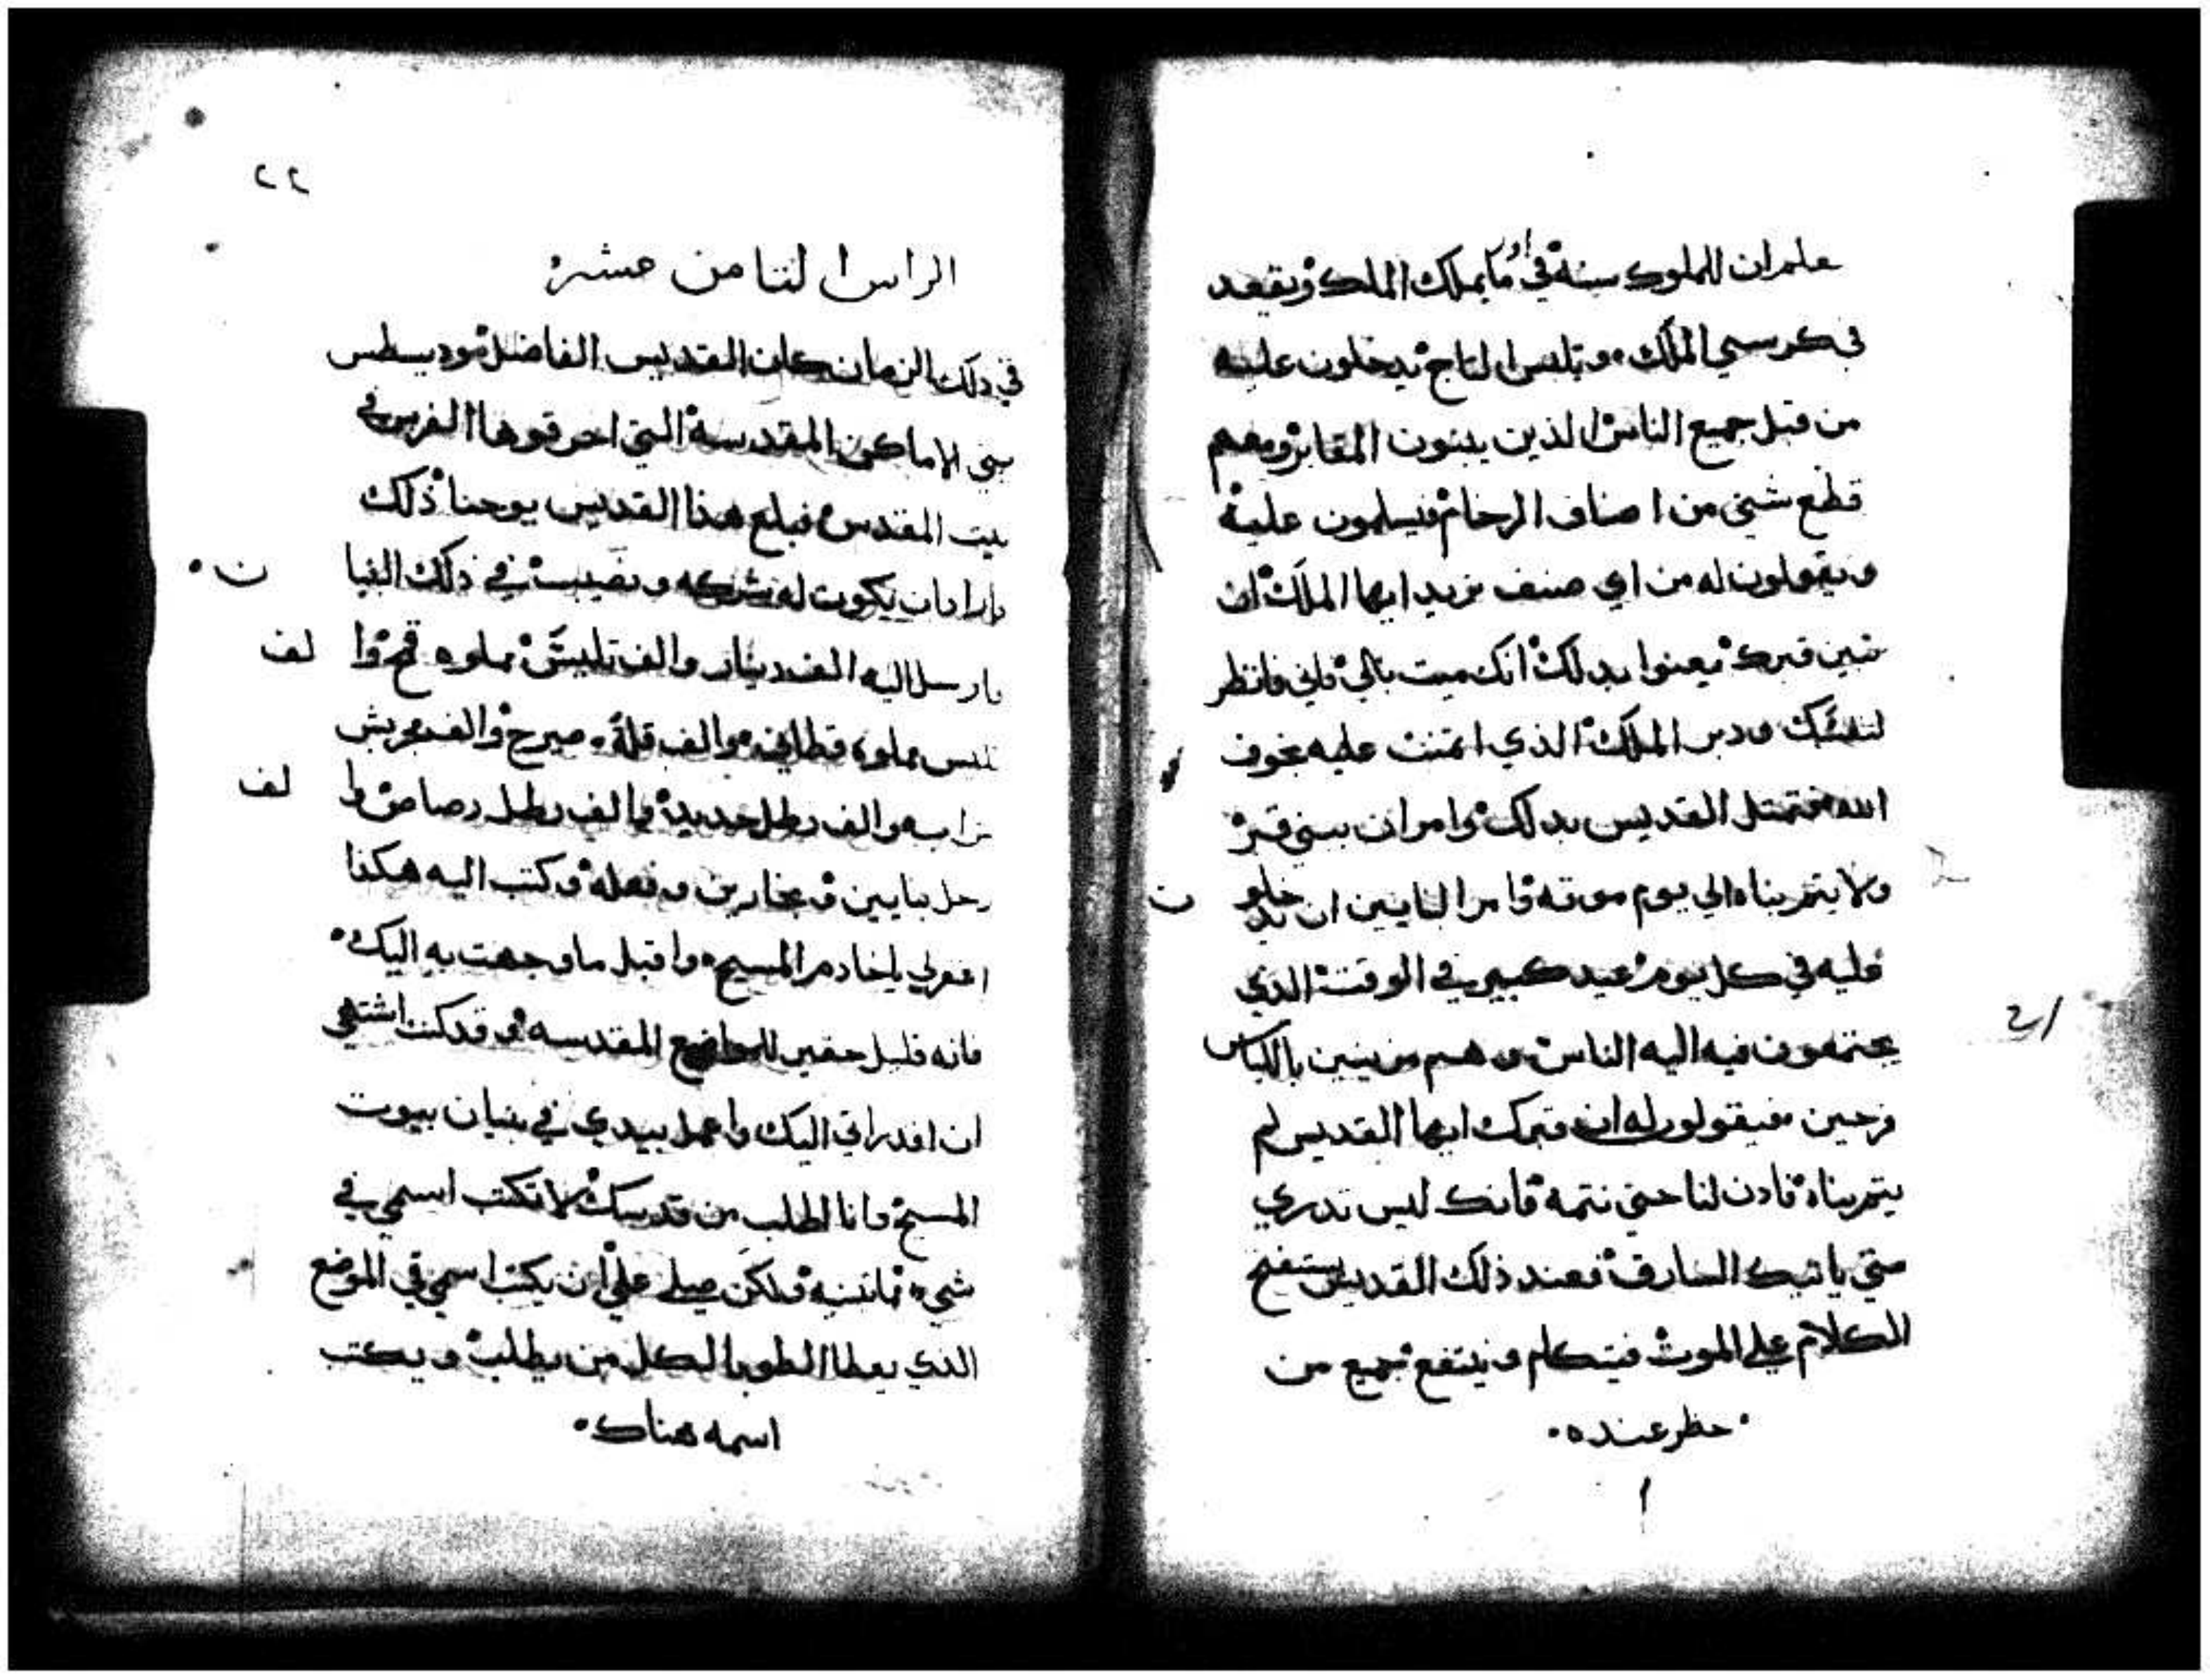 علم ان للملوك سنة في اول ما يملك الملك ويقعد
في كرسي الملك ويلبس التاج يدخلون عليه
من قبل جميع الناس الذين يبنون المقابر ومعهم
قطع شي من اصناف الرخام فيسلمون عليه
ويقولون له من اي صنف تريد ايها الملك ان
نبني قبرك يعنوا بدلك انك ميت بالي فاني فانظر
لنفسك ودبر الملك الذي اتمنت عليه بخوف
الله فتمتل القديس بدلك وامر ان يبني قبر
ولا يتم بناه الي يوم موته وامر البنايين ان يدخلو ن
عليه في كل يوم عيد كبير في الوقت الذي
يجتمعون فيه اليه الناس وهم مزينين باللباس
فرحين فيقولون له ان قبرك ايها القديس لم
يتم بناه فادن لنا حتي نتمه فانك ليس تدري
متي ياتيك السارق فعند ذلك القديس يستفتح
الكلام علي الموت فيتكلم وينتفع جميع من
حظر عنده
ا
٢١
٢٢
الراس الثامن عشر
في دلك الزمان كان القديس الفاضل موديسطس
يبني الاماكن المقدسة التي احرقوها الفرس في
بيت المقدس فبلغ هذا القديس يوحنا ذلك
واراد ان يكون له شركه ونصيب في ذلك البنيا ن
فارسل اليه الف دينار والف تليس مملوه قمح وا لف
تليس مملوه قطاني والف قلة صير والف
شراب والف رطل حديد والف رطل رصاص وا لف
رجل بنايين ونجارين وفعله وكتب اليه هكذا
اغفر لي يا خادم المسيح واقبل ما وجهت به اليك
فانه قليل حقير للمواضع المقدسه وقد كنت اشتهي
ان اقدر اتي اليك واعمل بيدي في بنيان بيوت
المسيح وانا اطلب من قدسك لا تكتب اسمي في
شي ولكن صلي علي ان يكتب اسمي في الموضع
الذي يعطا الطوبا لكل من يطلب ويكتب
اسمه هناك